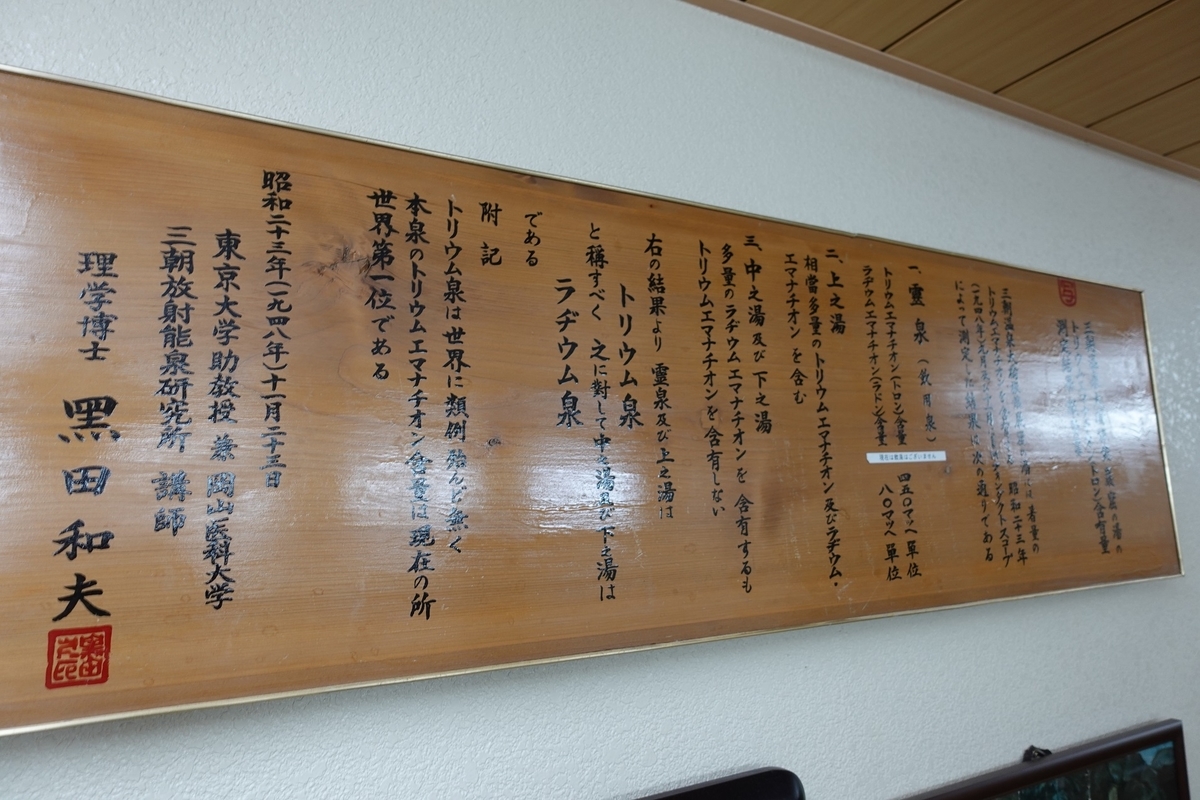 三朝温泉 の湯の
トリウム トロン含有量
測定
三朝温泉大橋旅館 には著量の
トリウムエマナチオンを含有 昭和二十三年
(一九四八年) フォンタクトスコープ
によって測定した結果は次の通りである
一、靈泉(飲用泉)
トリウムエマナチオン(トロン)含量 四五〇マッヘ單位
ラヂウムエマナチオン(ラドン)含量 八〇マッヘ單位
現在は飲泉はございません
二、上之湯
相當多量のトリウムエマナチオン及びラヂウム・
エマナチオンを含む
三、中之湯及び下之湯
多量のラヂウムエマナチオンを含有するも
トリウムエマナチオンを含有しない
右の結果より 靈泉及び上之湯は
トリウム泉
と稱すべく 之に対して中之湯及び下之湯は
ラヂウム泉
である
附記
トリウム泉は世界に類例殆んど無く
本泉のトリウムエマナチオン含量は現在の所
世界第一位である
昭和二十三年(一九四八年)十一月二十三日
東京大学助教授 兼 岡山医科大学
三朝放射能泉研究所 講師
理学博士 黒田和夫